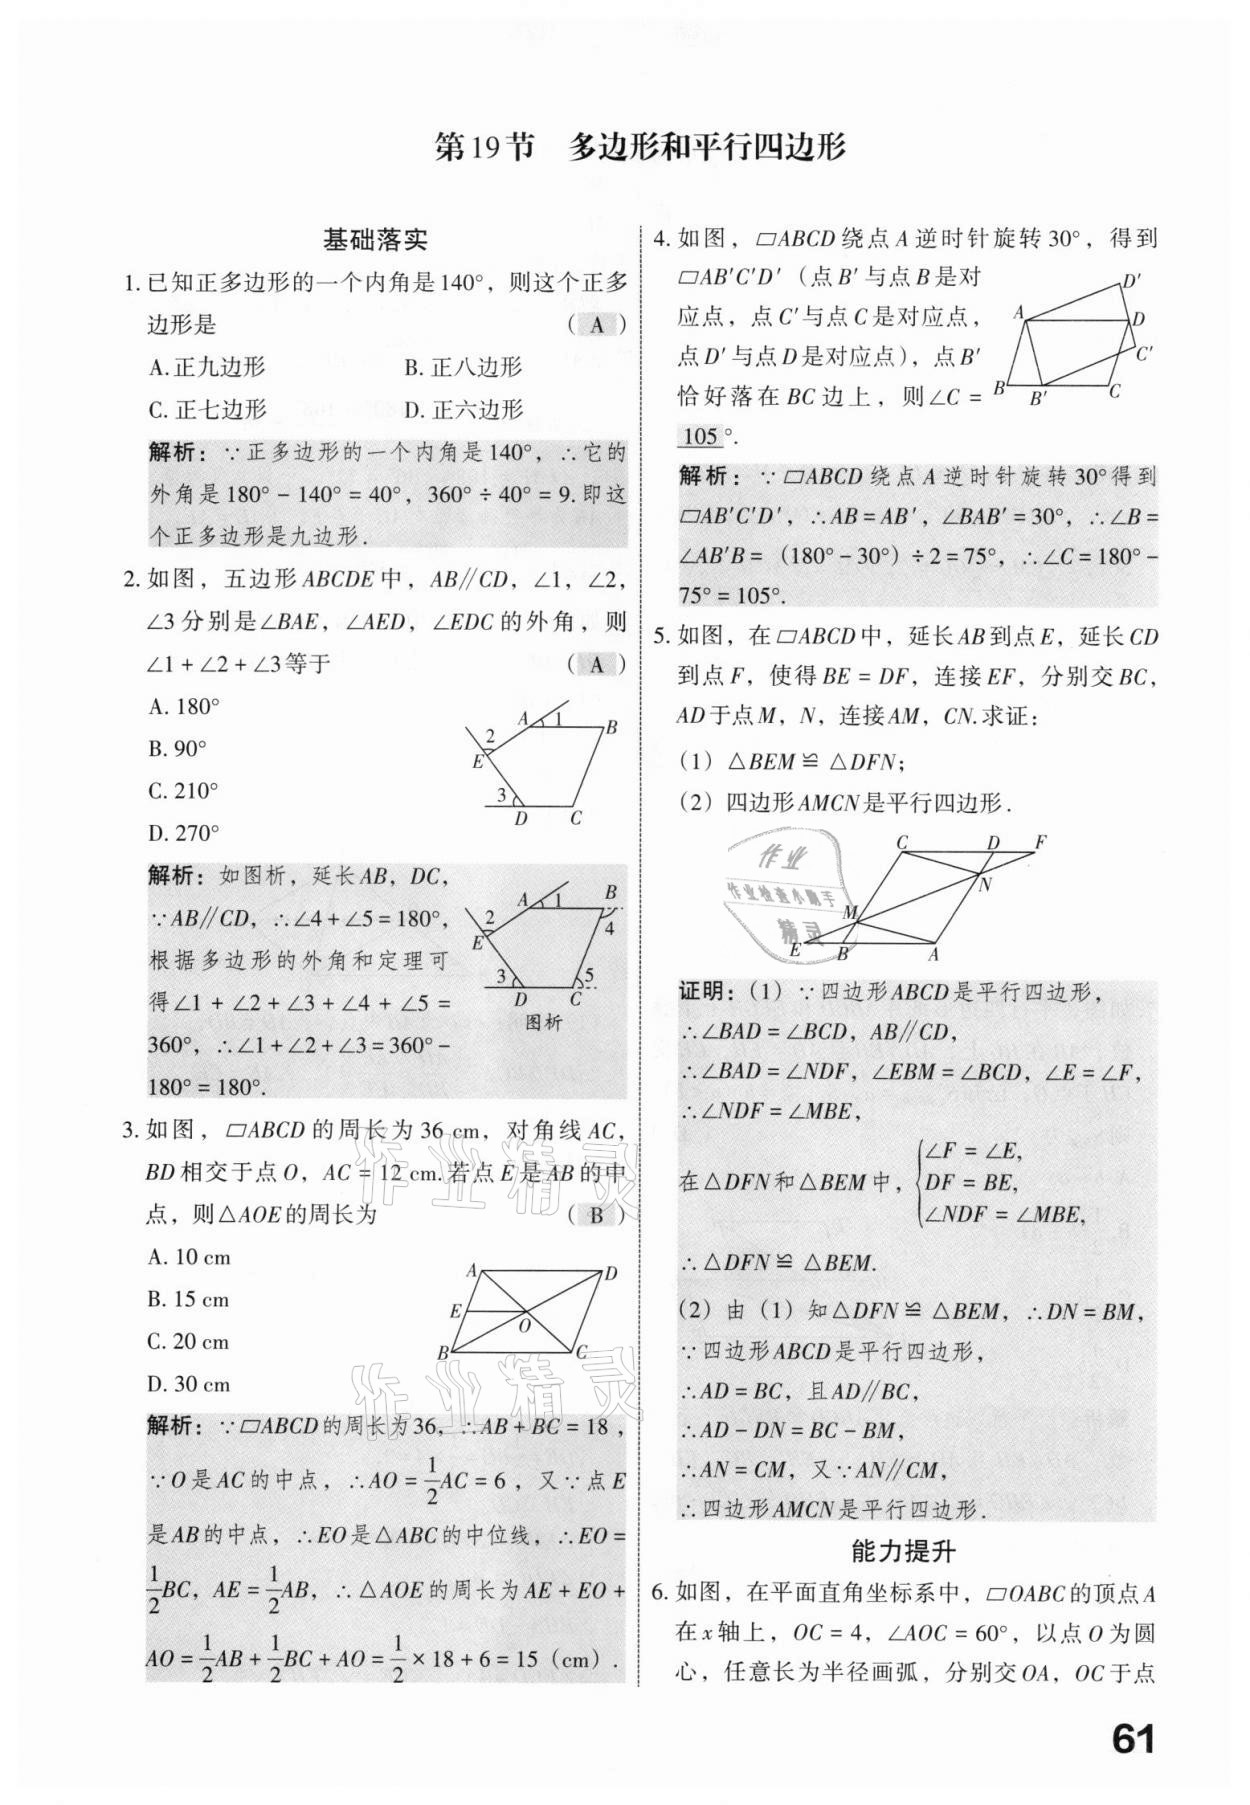 第19节 多边形和平行四边形
基础落实
1. 已知正多边形的一个内角是140°，则这个正多
边形是 （ A ）
A. 正九边形 B. 正八边形
C. 正七边形 D. 正六边形
解析：∵正多边形的一个内角是140°，∴它的
外角是180°－140°＝40°，360°÷40°＝9.即这
个正多边形是九边形.
2. 如图，五边形ABCDE中，AB∥CD，∠1，∠2，
∠3分别是∠BAE，∠AED，∠EDC的外角，则
∠1＋∠2＋∠3等于 （ A ）
A. 180°
B. 90°
C. 210°
D. 270°
A 1 B
2
E
3
D C
解析：如图析，延长AB，DC，
∵AB∥CD，∴∠4＋∠5＝180°，
根据多边形的外角和定理可
得∠1＋∠2＋∠3＋∠4＋∠5＝
360°，∴∠1＋∠2＋∠3＝360°－
180°＝180°.
A 1 B
2 4
E
3 5
D C
图析
3. 如图，▱ABCD的周长为36 cm，对角线AC，
BD相交于点O，AC＝12 cm.若点E是AB的中
点，则△AOE的周长为 （ B ）
A. 10 cm
B. 15 cm
C. 20 cm
D. 30 cm
A D
E
O
B C
解析：∵▱ABCD的周长为36，∴AB＋BC＝18，
∵O是AC的中点，∴AO＝1/2AC＝6，又∵点E
是AB的中点，∴EO是△ABC的中位线，∴EO＝
1/2BC，AE＝1/2AB，∴△AOE的周长为AE＋EO＋
AO＝1/2AB＋1/2BC＋AO＝1/2×18＋6＝15（cm）.
4. 如图，▱ABCD绕点A逆时针旋转30°，得到
▱AB′C′D′（点B′与点B是对
应点，点C′与点C是对应点，
点D′与点D是对应点），点B′
恰好落在BC边上，则∠C＝
105°.
D′
A D
C′
B B′ C
解析：∵▱ABCD绕点A逆时针旋转30°得到
▱AB′C′D′，∴AB＝AB′，∠BAB′＝30°，∴∠B＝
∠AB′B＝（180°－30°）÷2＝75°，∴∠C＝180°－
75°＝105°.
5. 如图，在▱ABCD中，延长AB到点E，延长CD
到点F，使得BE＝DF，连接EF，分别交BC，
AD于点M，N，连接AM，CN.求证：
（1）△BEM≌△DFN；
（2）四边形AMCN是平行四边形.
C D F
N
M
E B A
作业
作业检查小助手
精灵
证明：（1）∵四边形ABCD是平行四边形，
∴∠BAD＝∠BCD，AB∥CD，
∴∠BAD＝∠NDF，∠EBM＝∠BCD，∠E＝∠F，
∴∠NDF＝∠MBE，
在△DFN和△BEM中，{∠F＝∠E，
DF＝BE，
∠NDF＝∠MBE，
∴△DFN≌△BEM.
（2）由（1）知△DFN≌△BEM，∴DN＝BM，
∵四边形ABCD是平行四边形，
∴AD＝BC，且AD∥BC，
∴AD－DN＝BC－BM，
∴AN＝CM，又∵AN∥CM，
∴四边形AMCN是平行四边形.
能力提升
6. 如图，在平面直角坐标系中，▱OABC的顶点A
在x轴上，OC＝4，∠AOC＝60°，以点O为圆
心，任意长为半径画弧，分别交OA，OC于点
作业精灵
作业精灵
61